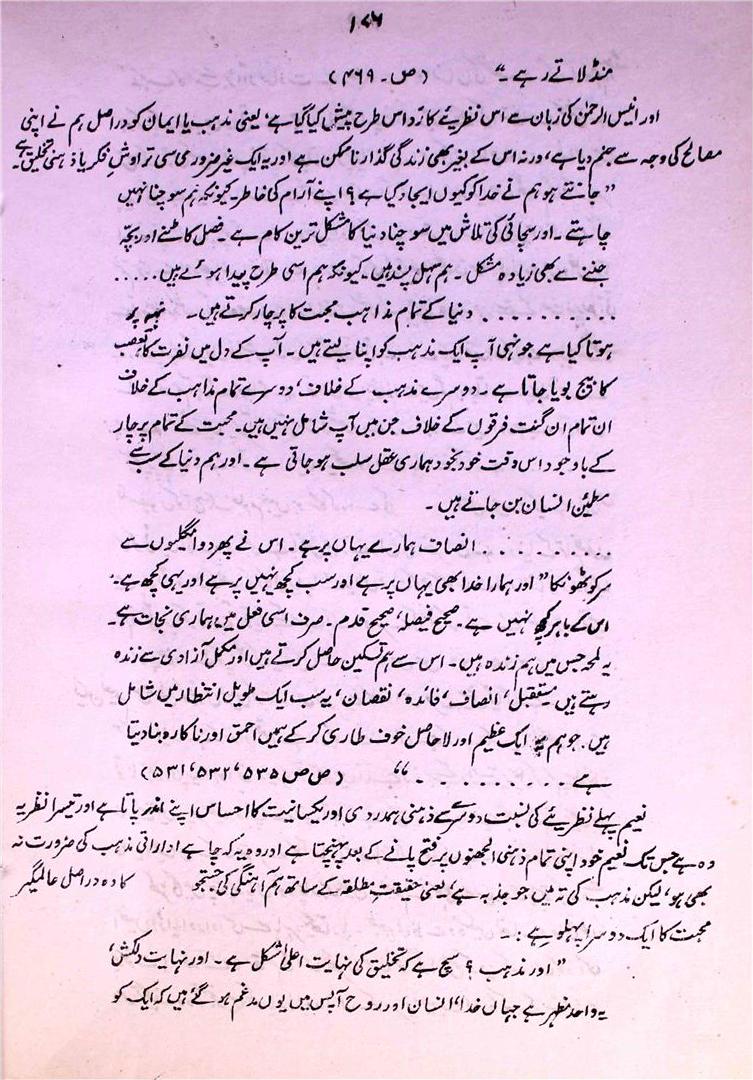 ۱۷۶
منڈلاتے رہے ۔“ (ص۔ ۴۶۹)
اور انیس الرحمٰن کی زبان سے اس نظریئے کا رد اس طرح پیش کیا گیا ہے، یعنی مذہب یا ایمان کو دراصل ہم نے اپنی
مصالح کی وجہ سے جنم دیا ہے، ورنہ اس کے بغیر بھی زندگی گذارنا ممکن ہے اور یہ ایک غیر ضروری سی تراوشِ فکر یا ذہنی تخلیق ہے
”جانتے ہو ہم نے خدا کو کیوں ایجاد کیا ہے؟ اپنے آرام کی خاطر۔ کیونکہ ہم سوچنا نہیں
چاہتے ۔ اور سچائی کی تلاش میں سوچنا دنیا کا مشکل ترین کام ہے ۔ فصل کاٹنے اور بچہ
جننے سے بھی زیادہ مشکل ۔ ہم سہل پسند ہیں ۔ کیونکہ ہم اسی طرح پیدا ہوئے ہیں .....
.......... دنیا کے تمام مذاہب محبت کا پرچار کرتے ہیں ۔ پھر
ہوتا کیا ہے جونہی آپ ایک مذہب کو اپنا لیتے ہیں ۔ آپ کے دل میں نفرت کا تعصب
کا بیج بویا جاتا ہے ۔ دوسرے مذہب کے خلاف، دوسرے تمام مذاہب کے خلاف
ان تمام ان گنت فرقوں کے خلاف جن میں آپ شامل نہیں ہیں ۔ محبت کے تمام پرچار
کے باوجود اس وقت خود بخود ہماری عقل سلب ہو جاتی ہے ۔ اور ہم دنیا کے سب سے
مطمئن انسان بن جاتے ہیں ۔
.......... انصاف ہمارے یہاں پر ہے ۔ اس نے پھر دو انگلیوں سے
سر کو ٹھونکا“ اور ہمارا خدا بھی یہاں پر ہے اور سب کچھ یہیں پر ہے اور یہی کچھ ہے ۔
اس کے باہر کچھ نہیں ہے ۔ صحیح فیصلہ، صحیح قدم ۔ صرف اسی فعل میں ہماری نجات ہے ۔
یہ لمحہ جس میں ہم زندہ ہیں ۔ اس سے ہم تسکین حاصل کرتے ہیں اور مکمل آزادی سے زندہ
رہتے ہیں مستقبل، انصاف، فائدہ، نقصان، یہ سب ایک طویل انتظار میں شامل
ہیں ۔ جو ہم پر ایک عظیم اور لاحاصل خوف طاری کر کے ہمیں احمق اور ناکارہ بنا دیتا
ہے .......... “ (ص ص ۵۳۵، ۵۳۲، ۵۳۱)
نعیم پہلے نظریئے کی نسبت دوسرے ذہنی ہمدردی اور یکسانیت کا احساس اپنے اندر پاتا ہے اور تیسرا نظریہ
وہ ہے جس تک نعیم خود اپنی تمام ذہنی الجھنوں پر فتح پانے کے بعد پہنچتا ہے اور وہ یہ کہ چاہے اداراتی مذہب کی ضرورت نہ
بھی ہو، لیکن مذہب کی تہ میں جو جذبہ ہے، یعنی حقیقتِ مطلقہ کے ساتھ ہم آہنگی کی جستجو کا وہ دراصل عالمگیر
محبت کا ایک دوسرا پہلو ہے :۔
”اور مذہب؟ سچ ہے کہ تخلیق کی نہایت اعلیٰ شکل ہے ۔ اور نہایت دلکش،
یہ واحد مظہر ہے جہاں خدا، انسان اور روح آپس میں یوں مدغم ہو گئے ہیں کہ ایک کو